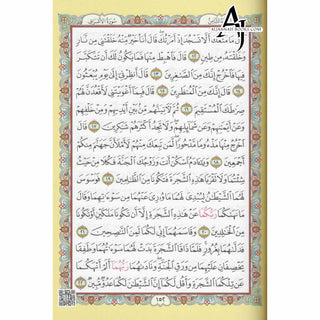 سورة الأعراف
AJ
ALJANNAH-BOOKS.COM
قال ما منعك ألا تسجد إذ أمرتك قال أنا خير منه خلقتني من نار
وخلقته من طين ١٢ قال فاهبط منها فما يكون لك أن تتكبر
فيها فاخرج إنك من الصاغرين ١٣ قال أنظرني إلى يوم يبعثون
١٤ قال إنك من المنظرين ١٥ قال فبما أغويتني لأقعدن لهم
صراطك المستقيم ١٦ ثم لآتينهم من بين أيديهم ومن خلفهم
وعن أيمانهم وعن شمائلهم ولا تجد أكثرهم شاكرين ١٧ قال
اخرج منها مذءوما مدحورا لمن تبعك منهم لأملأن جهنم منكم
أجمعين ١٨ ويا آدم اسكن أنت وزوجك الجنة فكلا من حيث
شئتما ولا تقربا هذه الشجرة فتكونا من الظالمين ١٩ فوسوس
لهما الشيطان ليبدي لهما ما وري عنهما من سوءاتهما وقال
ما نهاكما ربكما عن هذه الشجرة إلا أن تكونا ملكين أو تكونا
من الخالدين ٢٠ وقاسمهما إني لكما لمن الناصحين ٢١
فدلاهما بغرور فلما ذاقا الشجرة بدت لهما سوءاتهما وطفقا
يخصفان عليهما من ورق الجنة وناداهما ربهما ألم أنهكما
عن تلكما الشجرة وأقل لكما إن الشيطان لكما عدو مبين ٢٢
١٥٢